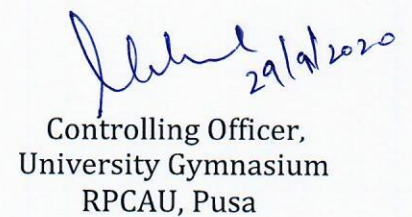 29/9/2020
Controlling Officer,
University Gymnasium
RPCAU, Pusa